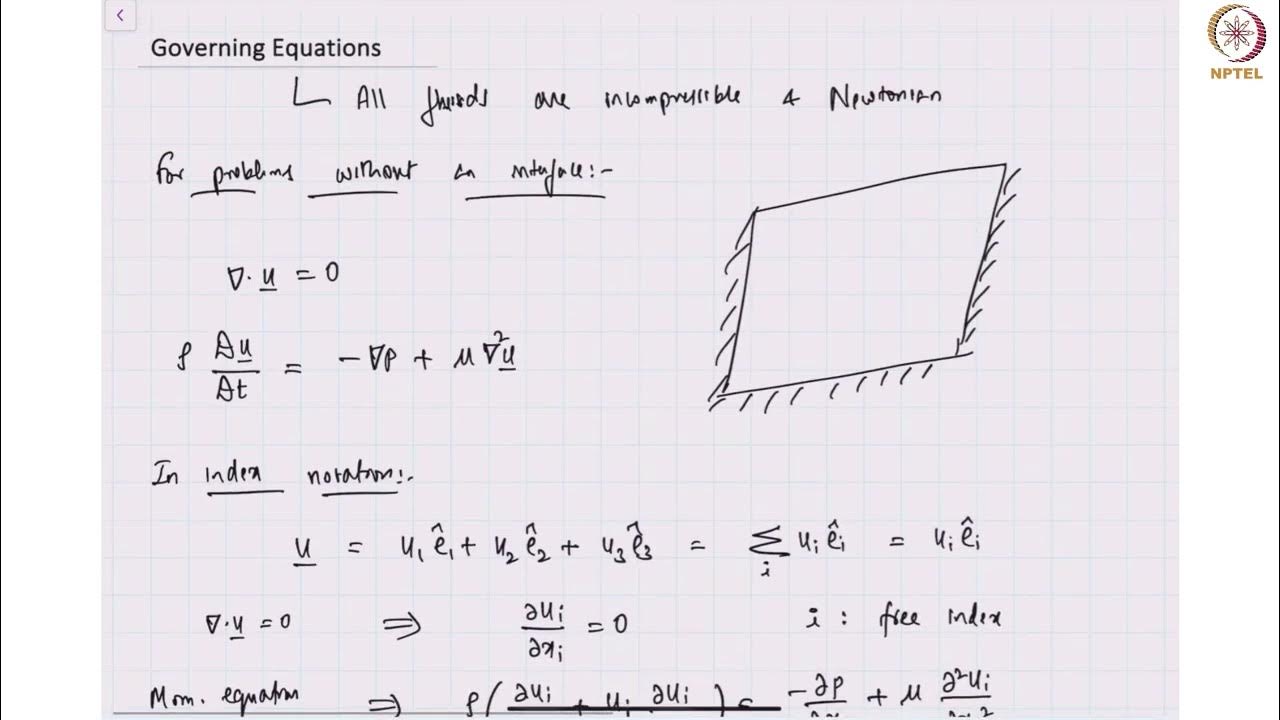 Governing Equations
NPTEL
All fluids are incompressible & Newtonian
For problems without an interface:-
∇·u = 0
ρ Du/Dt = -∇p + μ∇²u
In index notation:-
u = u₁ê₁ + u₂ê₂ + u₃ê₃ = Σᵢ uᵢêᵢ = uᵢêᵢ
∇·u = 0 ⟹ ∂uᵢ/∂xᵢ = 0 i : free index
Mom. equation ⟹ ρ(∂uᵢ + u ∂uᵢ ) = -∂p + μ ∂²uᵢ